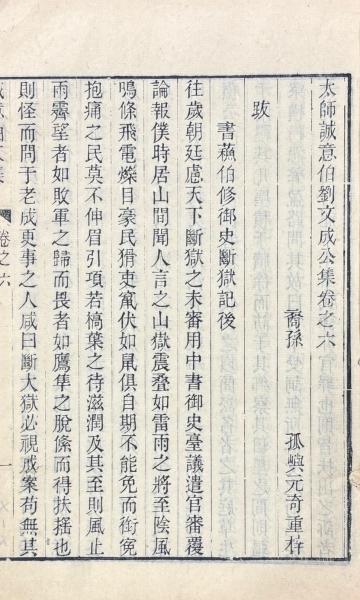 太師誠意伯劉文成公集卷之六
裔孫 孤嶼元奇重梓
跋
書蘓伯修御史斷獄記後
往歲朝廷慮天下斷獄之未審用中書御史臺議遣官審覆
論報僕時居山間聞人言之山獄震疊如雷雨之將至陰風
鳴條飛電爍目豪民猾吏竄伏如鼠俱自期不能免而銜寃
抱痛之民莫不伸眉引項若槁葉之待滋潤及其至則風止
雨霽望者如敗軍之歸而畏者如鷹隼之脫絛而得扶摇也
則怪而問于老成更事之人咸曰斷大獄必視成案苟無其
卷之六